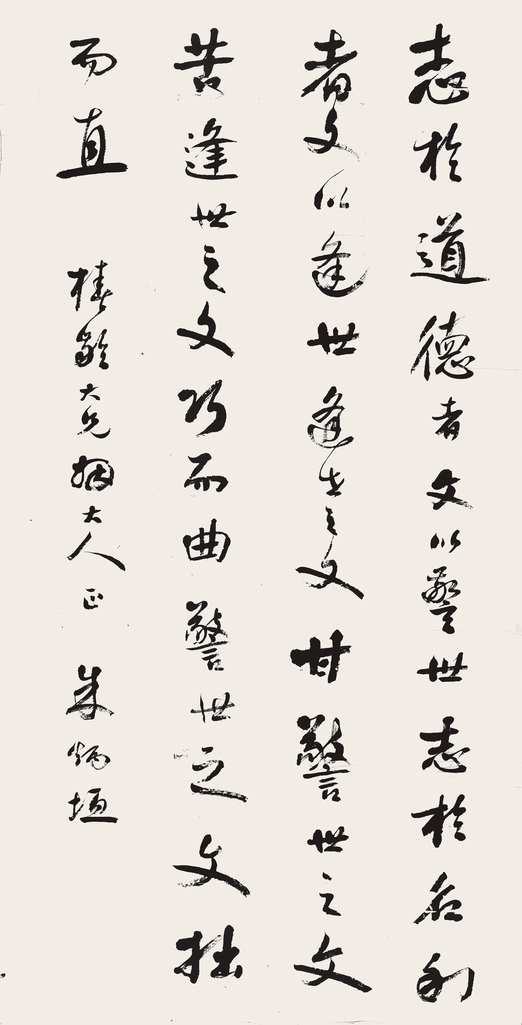 志於道德者文以警世志於名利
者文以逢世逢世之文甘警世之文
苦逢世之文巧而曲警世之文拙
而直
椿齡大兄姻大人正 朱炳垣